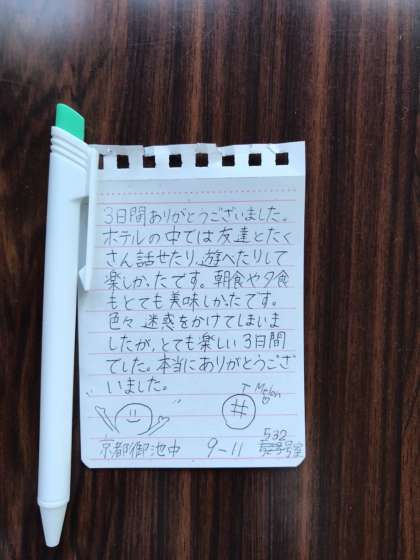 3日間ありがとうございました。
ホテルの中では友達とたく
さん話せたり、遊べたりして
楽しかったです。朝食や夕食
もとても美味しかったです。
色々迷惑をかけてしまいま
したが、とても楽しい3日間
でした。本当にありがとうござ
いました。
Melon
京都御池中 9-11 532号室